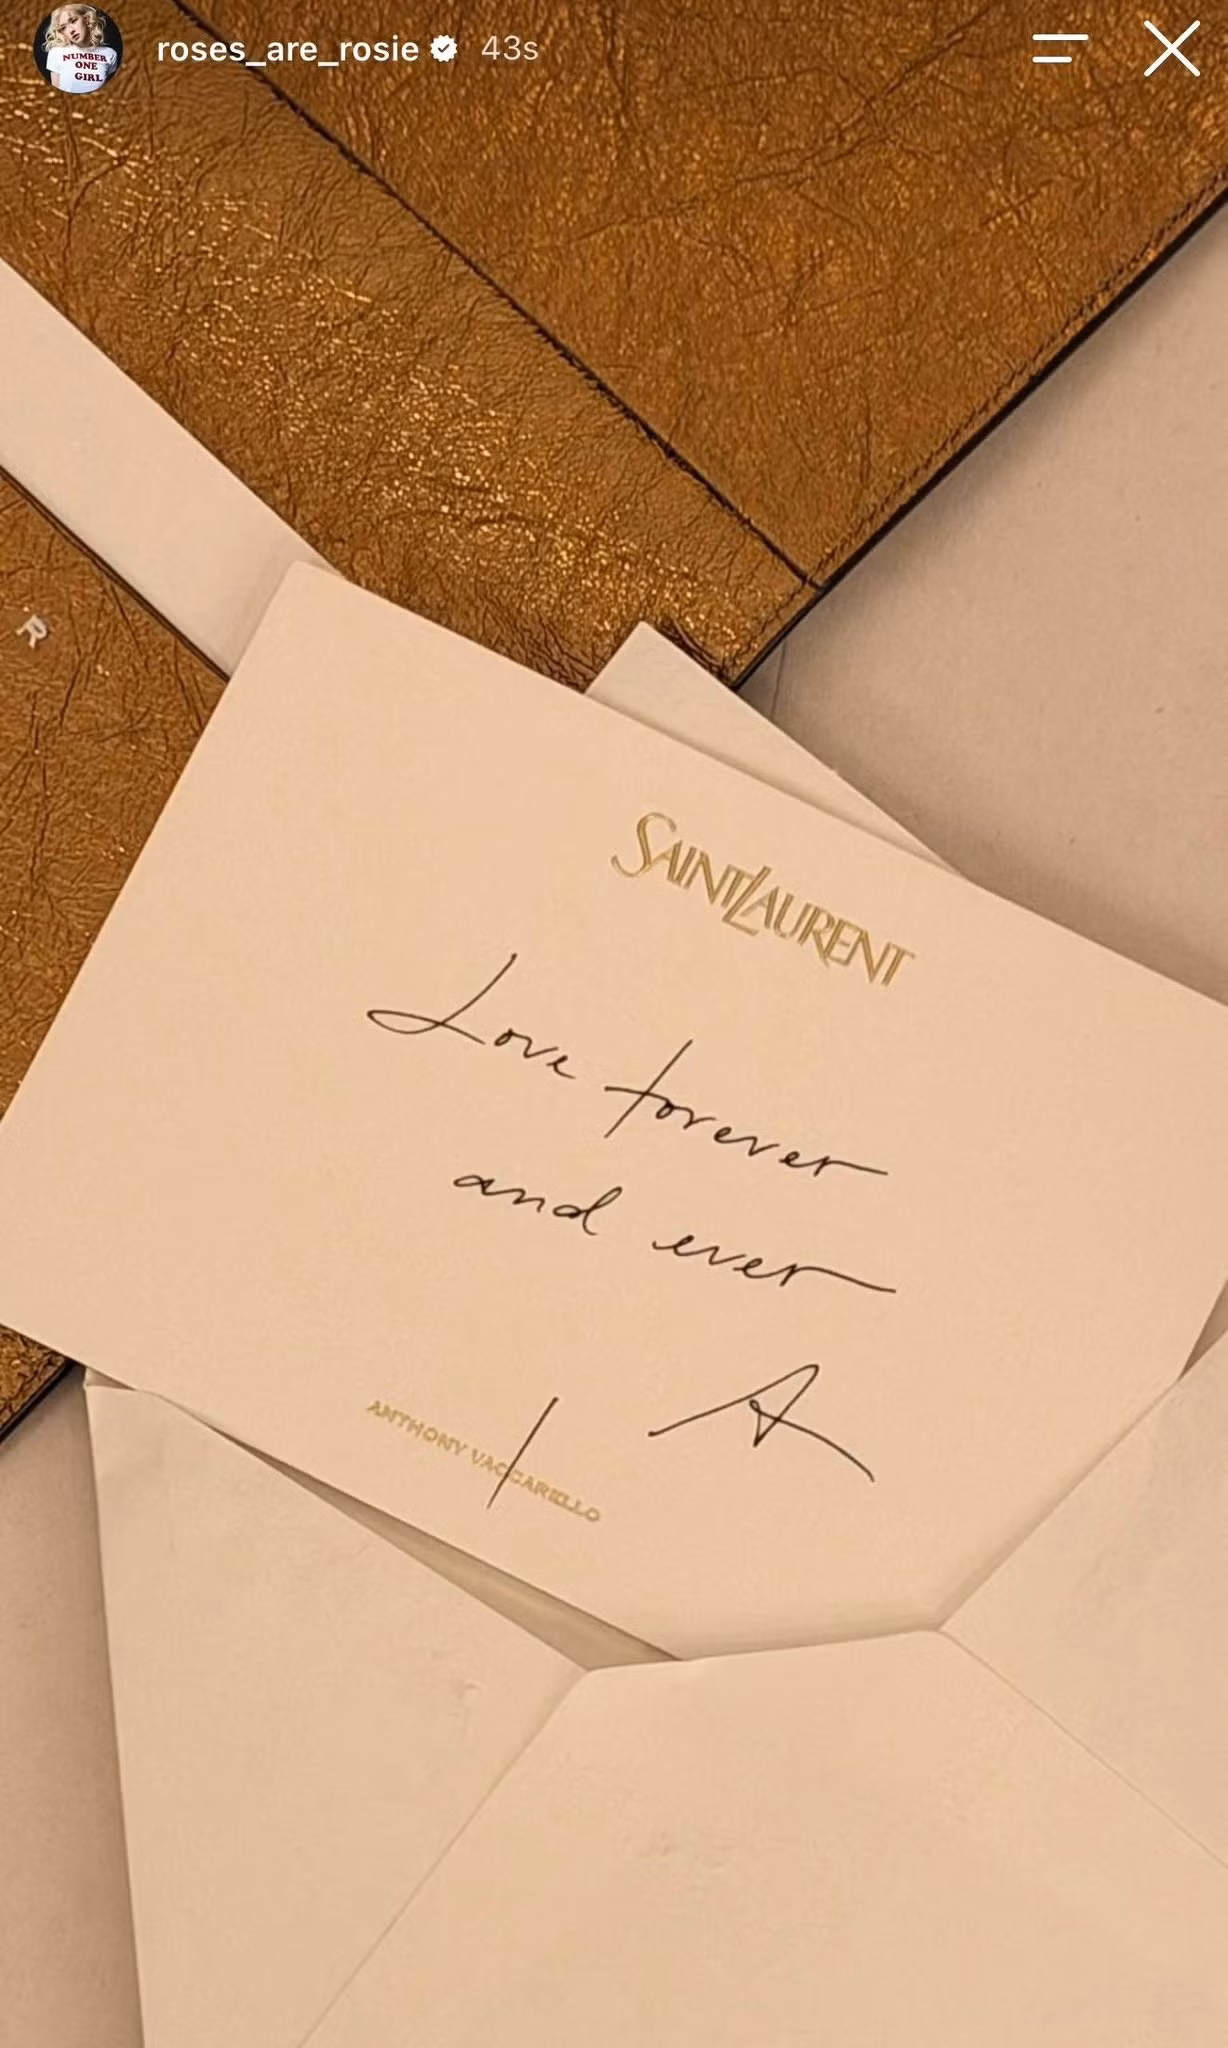 roses_are_rosie 43s
NUMBER
ONE
GIRL
R
SAINT LAURENT
Love forever
and ever
A
ANTHONY VACCARELLO